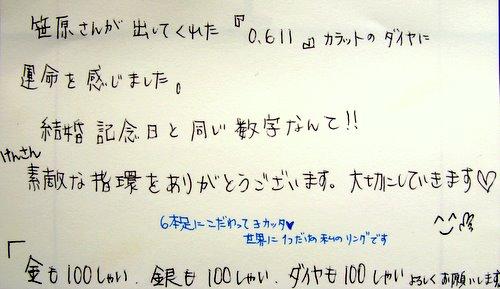 笹原さんが出してくれた『0.611』カラットのダイヤに
運命を感じました。
結婚記念日と同じ数字なんて!!
けんさん
素敵な指環をありがとうございます。大切にしていきます♡
6本足にこだわって3カッタ♥
世界に1つだけの私のリングです
「金も100しゃい、銀も100しゃい、ダイヤも100しゃいよろしくお願いします